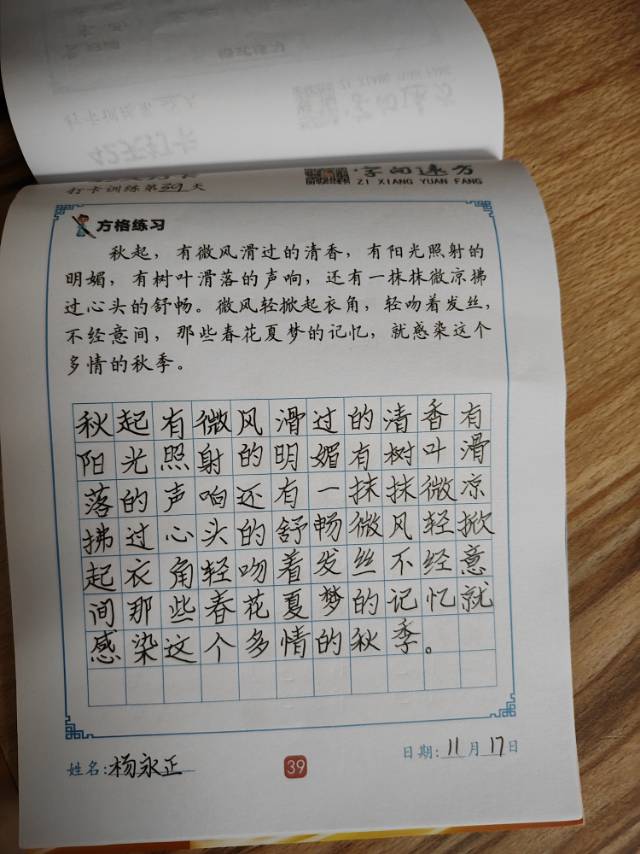 42天打卡
打卡训练第39天
字向远方
ZI XIANG YUAN FANG
方格练习
秋起，有微风滑过的清香，有阳光照射的
明媚，有树叶滑落的声响，还有一抹抹微凉拂
过心头的舒畅。微风轻掀起衣角，轻吻着发丝，
不经意间，那些春花夏梦的记忆，就感染这个
多情的秋季。
秋起有微风滑过的清香有
阳光照射的明媚有树叶滑
落的声响还有一抹抹微凉
拂过心头的舒畅微风轻掀
起衣角轻吻着发丝不经意
间那些春花夏梦的记忆就
感染这个多情的秋季。
日期:11月17日
姓名:杨永正
39